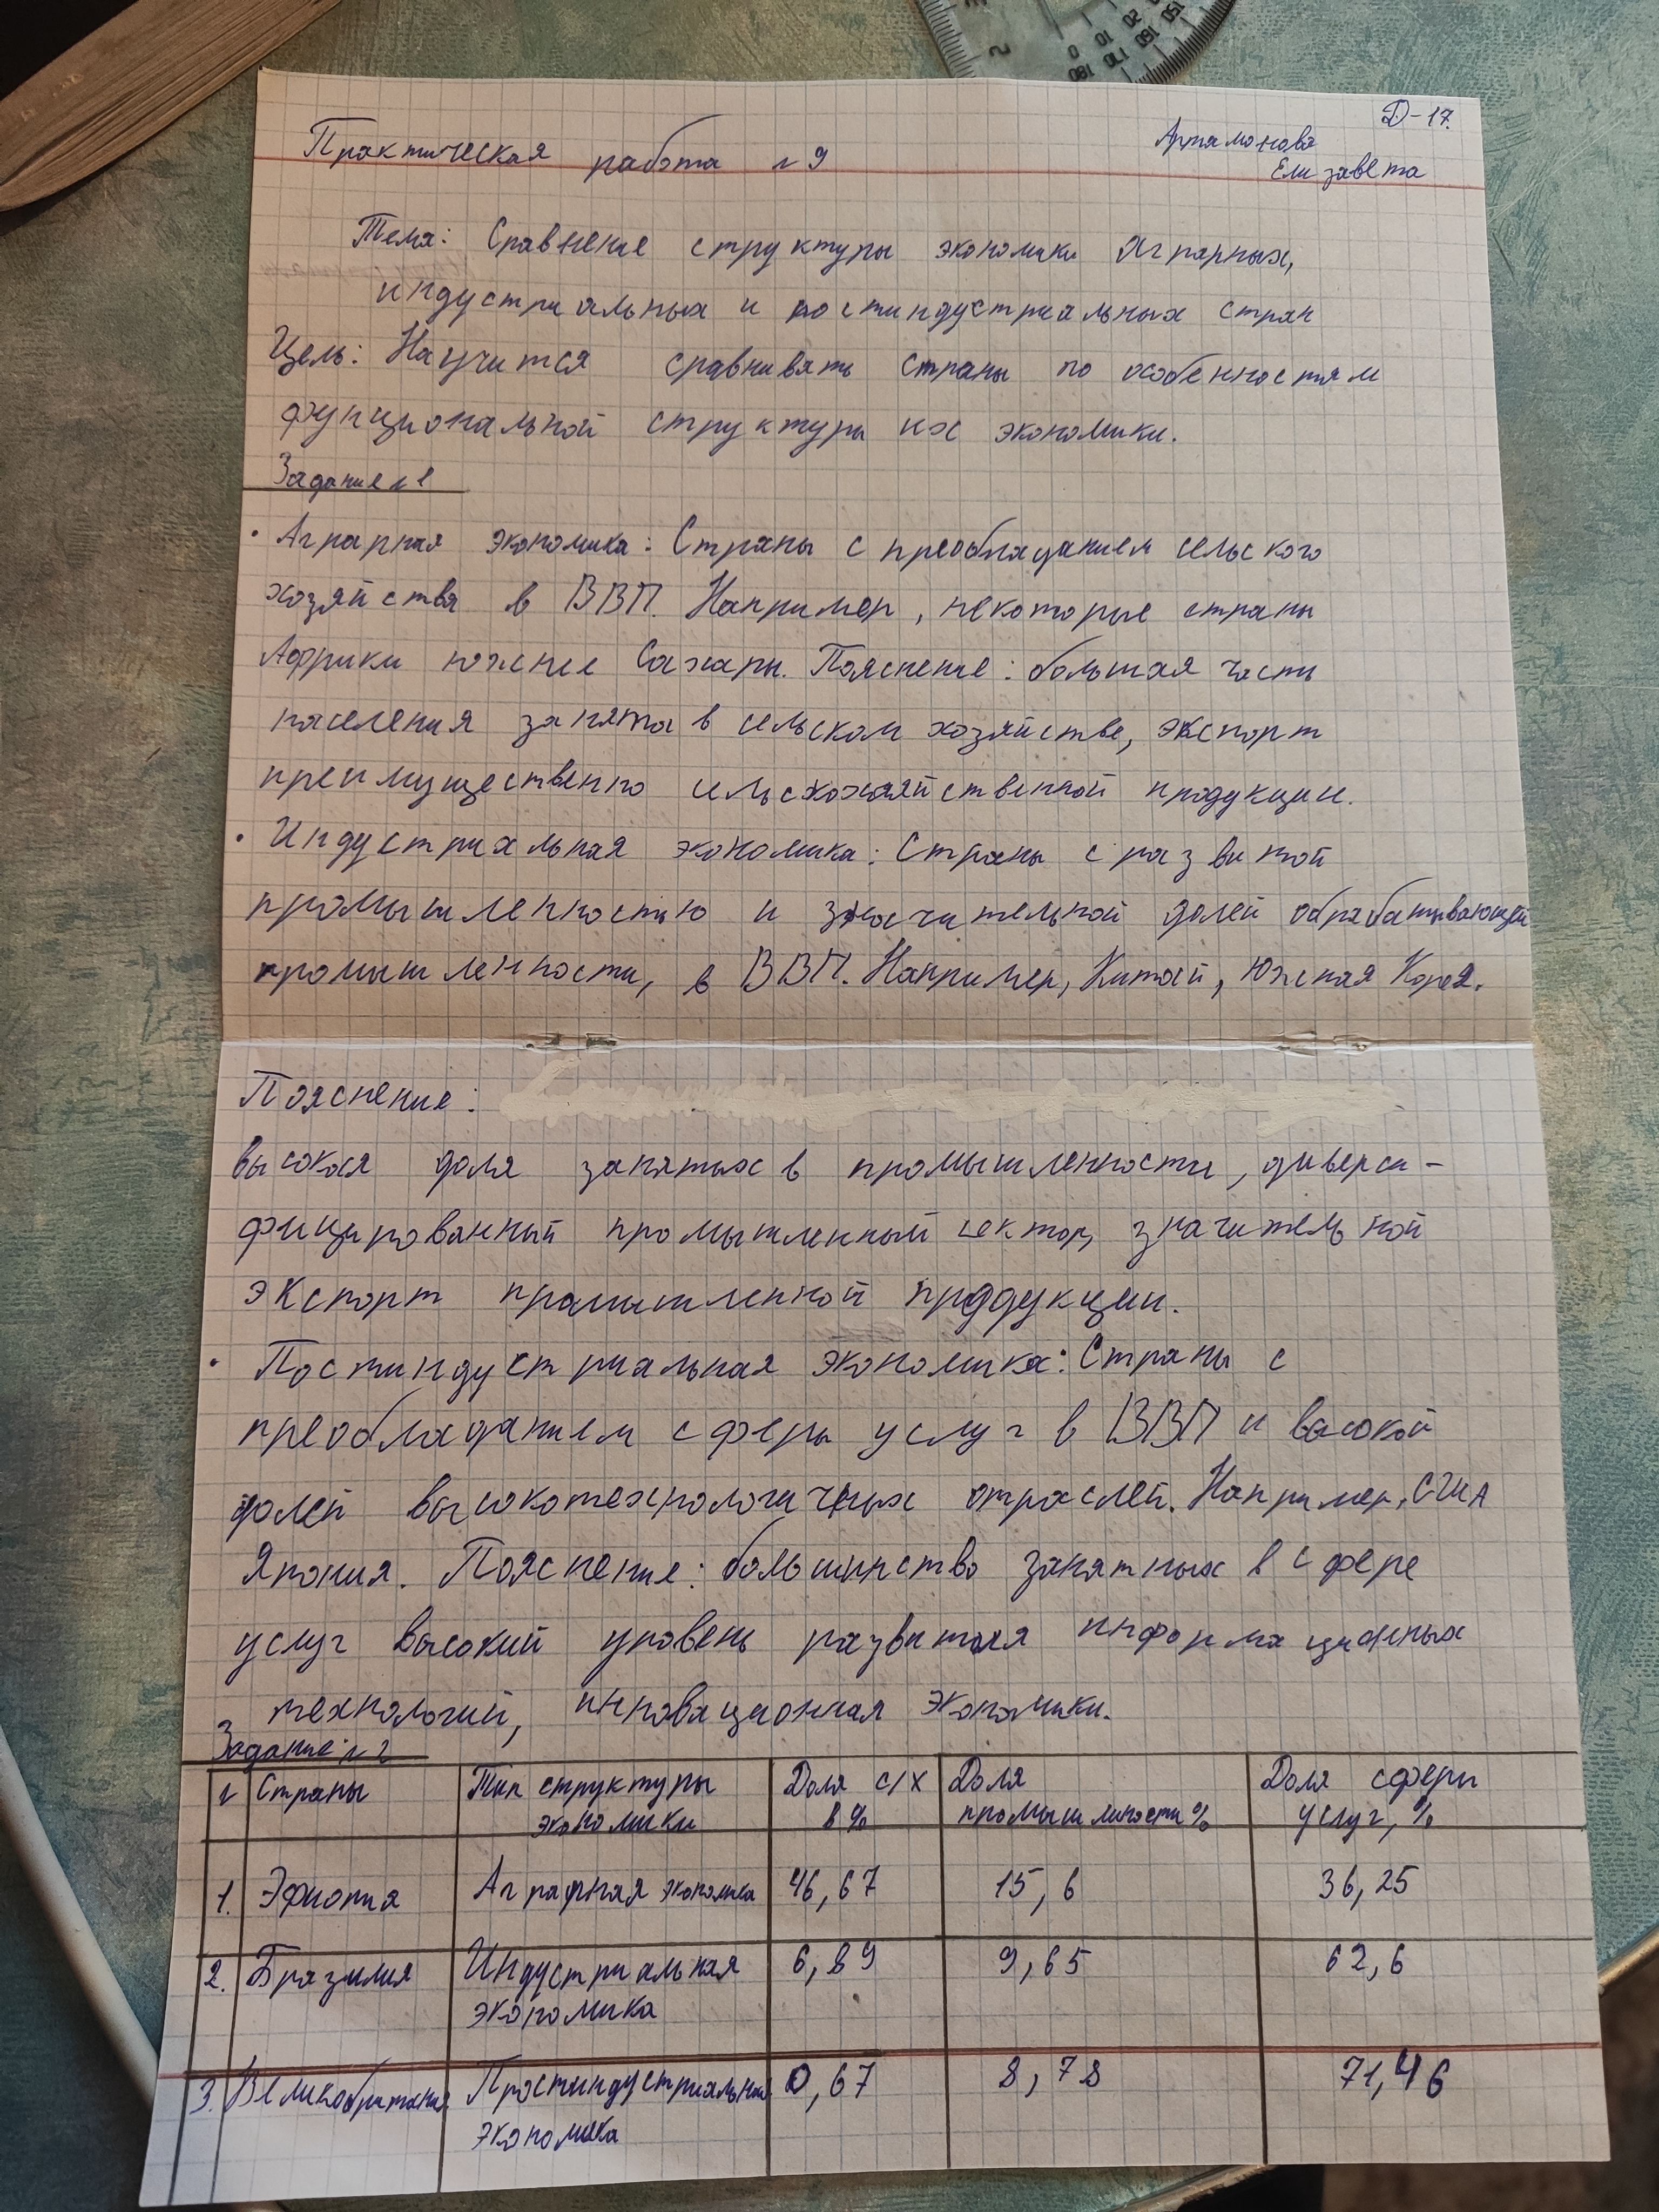 Д-17.
Практическая работа №9
Артамонова
Елизавета
Тема: Сравнение структуры экономики аграрных,
индустриальных и постиндустриальных стран
Цель: Научится сравнивать страны по особенностям
фунциональной структуры их экономики.
Задание №1
• Аграрная экономика: Страны с преобладанием сельского
хозяйства в ВВП. Например, некоторые страны
Африки южнее Сахары. Пояснение: большая часть
населения занята в сельском хозяйстве, экспорт
преимущественно сельскохозяйственной продукции.
• Индустриальная экономика: Страны с развитой
промышленностью и значительной долей обрабатывающей
промышленности, в ВВП. Например, Китай, Южная Корея.
Пояснение:
высокая доля занятых в промышленности, диверси-
фицированный промышленный сектор, значительной
экспорт промышленной продукции.
• Постиндустриальная экономика: Страны с
преобладанием сферы услуг в ВВП и высокой
долей высокотехнологичных отраслей. Например, США
Япония. Пояснение: большинство занятных в сфере
услуг высокий уровень развития информационных
технологий, инновационная экономики.
Задание №2
№ Страны Тип структуры экономики Доля с/х в % Доля промышлености % Доля сферы услуг, %
1. Эфиопия Аграрная экономика 46,67 15,6 36,25
2. Бразилия Индустриальная экономика 6,89 9,65 62,6
3. Великобритания Простиндустриальная экономика 0,67 8,78 71,46